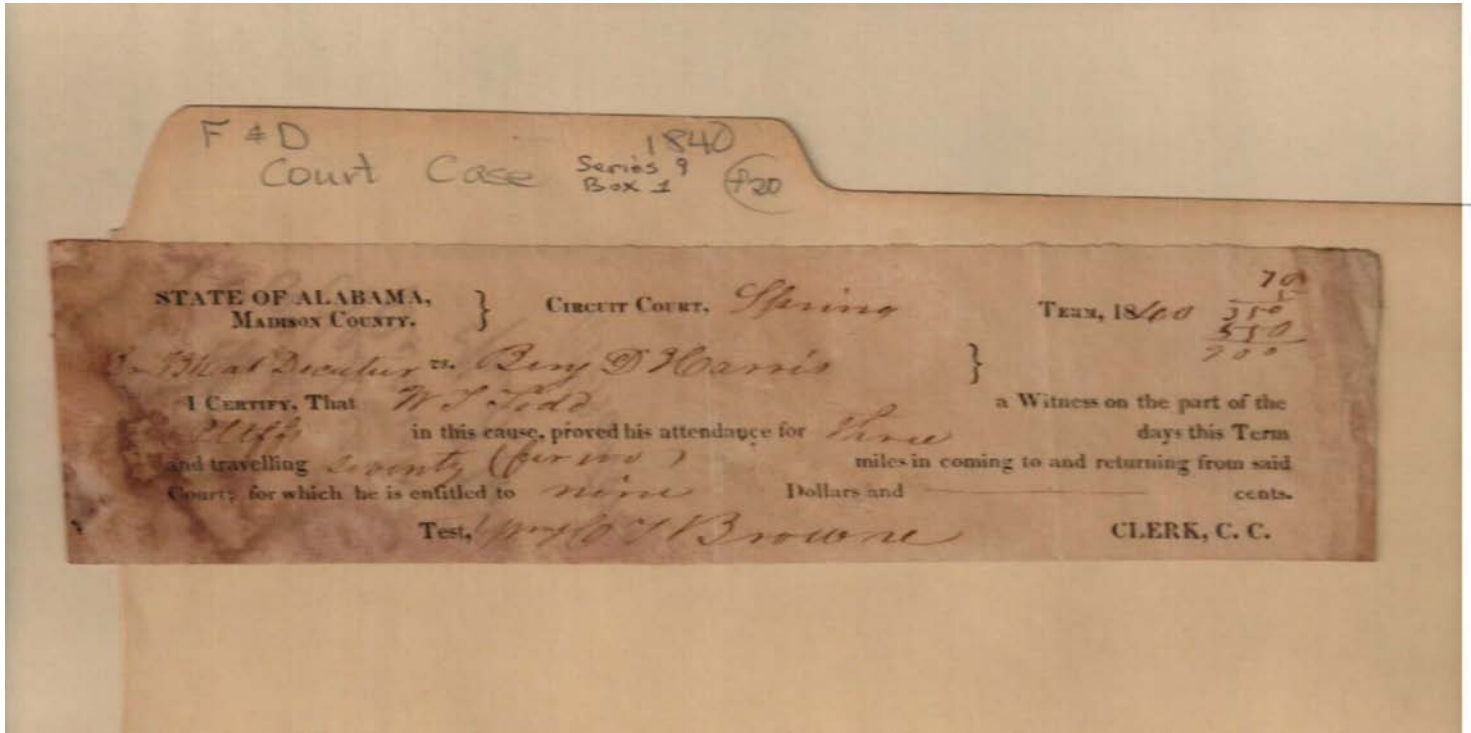 F & D 1840
Court Case Series 9
Box 1
F20
70
5
STATE OF ALABAMA, } CIRCUIT COURT, Spring TERM, 1840 350
MADISON COUNTY. 550
900
Br Bk at Decatur vs. Benj D Harris }
I CERTIFY, That W T Todd a Witness on the part of the
Pltffs in this cause, proved his attendance for three days this Term
and travelling seventy ( ) miles in coming to and returning from said
Court; for which he is entitled to nine Dollars and —— cents.
Test, Browne CLERK, C. C.